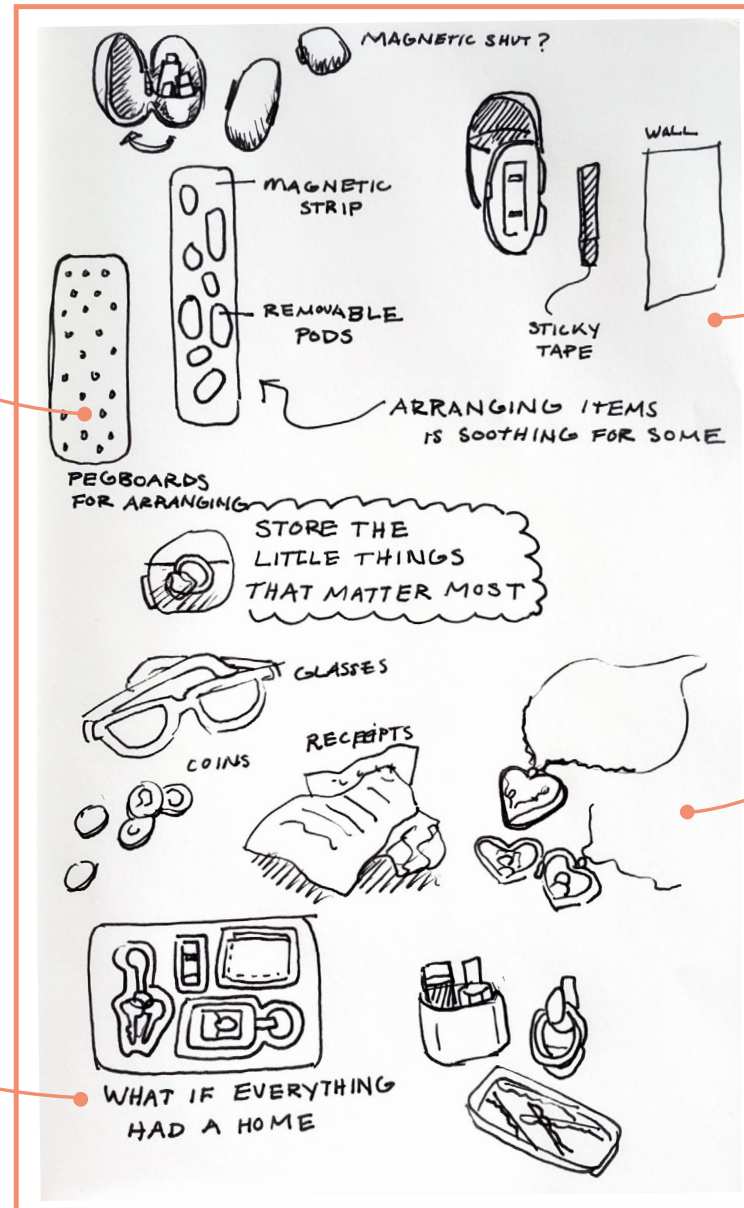 MAGNETIC SHUT?
WALL
MAGNETIC
STRIP
REMOVABLE
PODS
STICKY
TAPE
ARRANGING ITEMS
IS SOOTHING FOR SOME
PEGBOARDS
FOR ARRANGING
STORE THE
LITTLE THINGS
THAT MATTER MOST
GLASSES
COINS
RECEIPTS
WHAT IF EVERYTHING
HAD A HOME